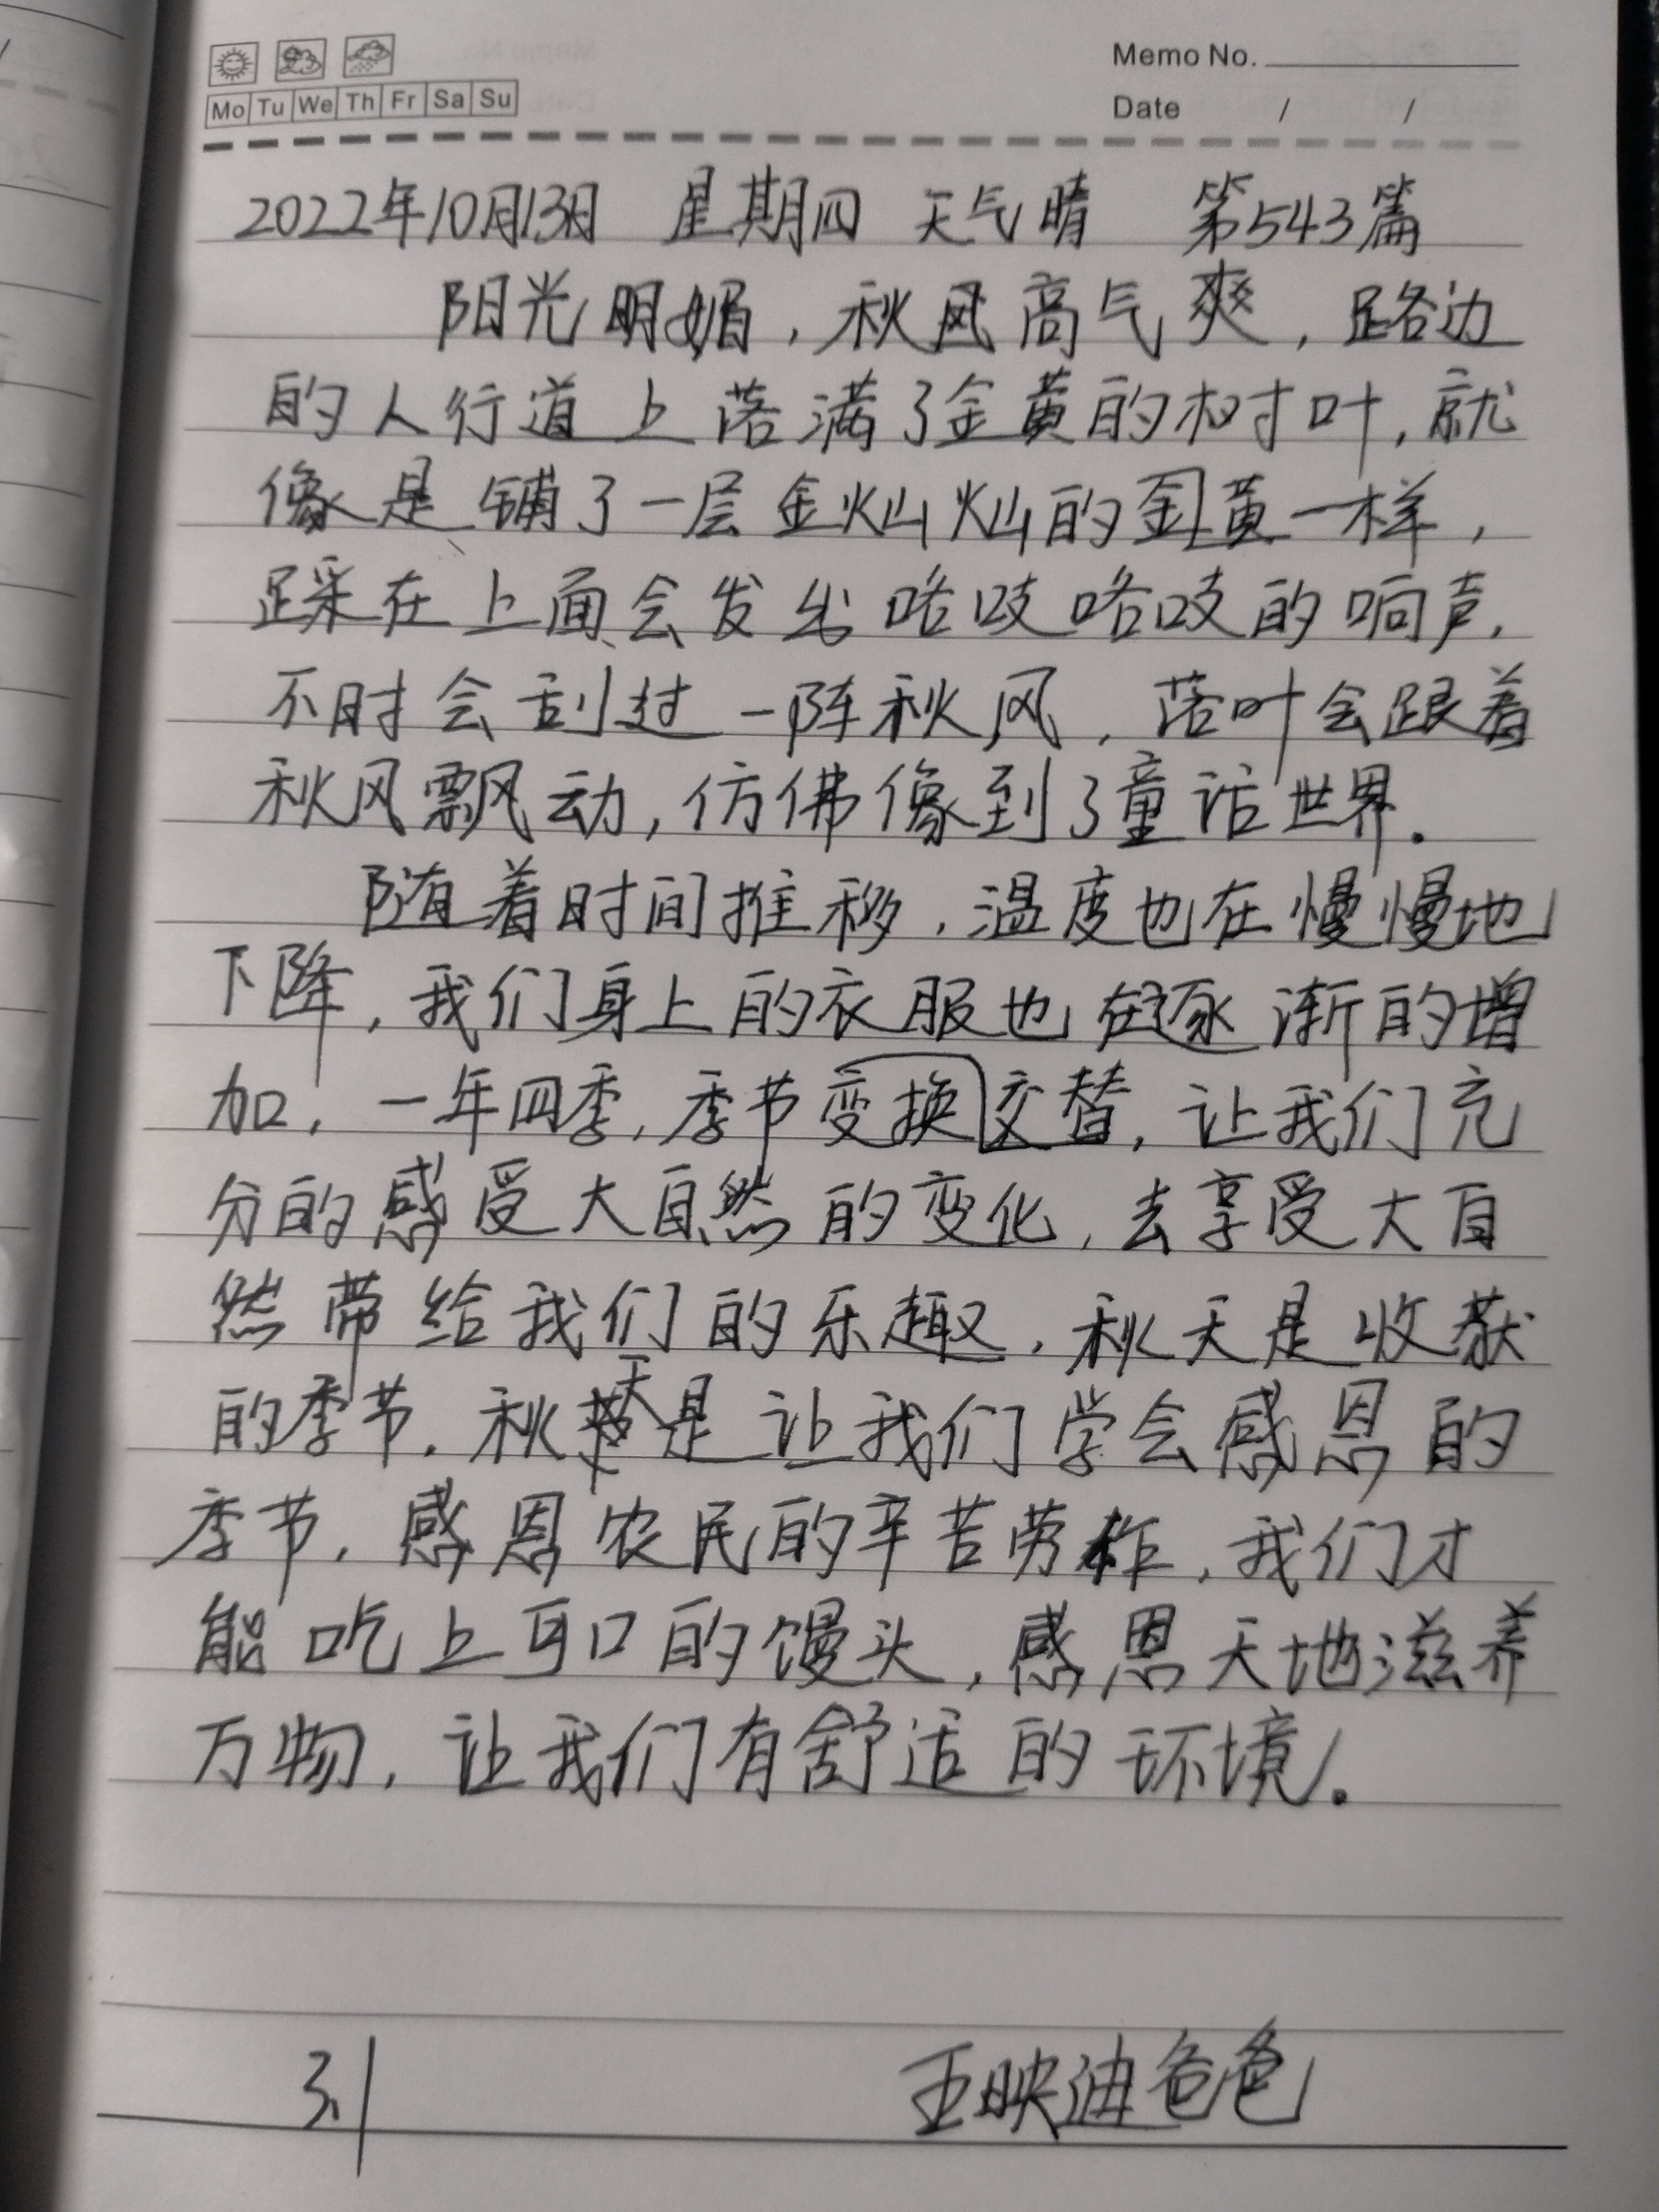 Memo No.
Mo Tu We Th Fr Sa Su
Date / /
2022年10月13日 星期四 天气晴 第543篇
阳光明媚，秋风高气爽，路边
的人行道上落满了金黄的树叶，就
像是铺了一层金灿灿的金黄一样，
踩在上面会发出咯吱咯吱的响声，
不时会刮过一阵秋风，落叶会跟着
秋风飘动，仿佛像到了童话世界。
随着时间推移，温度也在慢慢地
下降，我们身上的衣服也在逐渐的增
加，一年四季，季节变换交替，让我们充
分的感受大自然的变化，去享受大自
然带给我们的乐趣，秋天是收获
的季节，秋天是让我们学会感恩的
季节，感恩农民的辛苦劳作，我们才
能吃上可口的馒头，感恩天地滋养
万物，让我们有舒适的环境。
王映迪爸爸